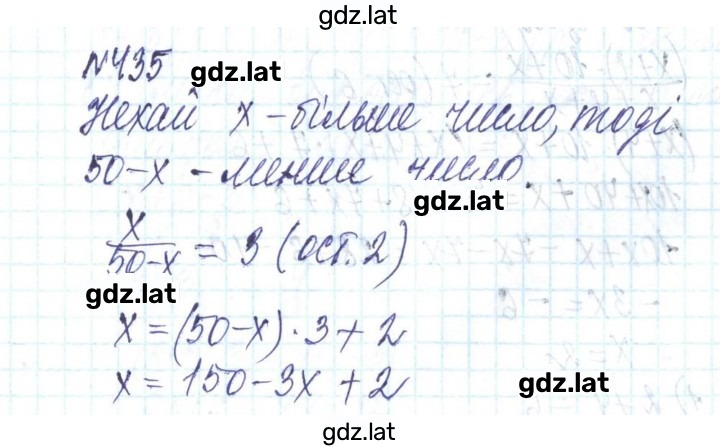 gdz.lat
№435
gdz.lat
Нехай x – більше число, тоді
50-x – менше число.
gdz.lat
x/(50-x) = 3 (ост. 2)
gdz.lat
x = (50-x) · 3 + 2
x = 150 - 3x + 2
gdz.lat
gdz.lat